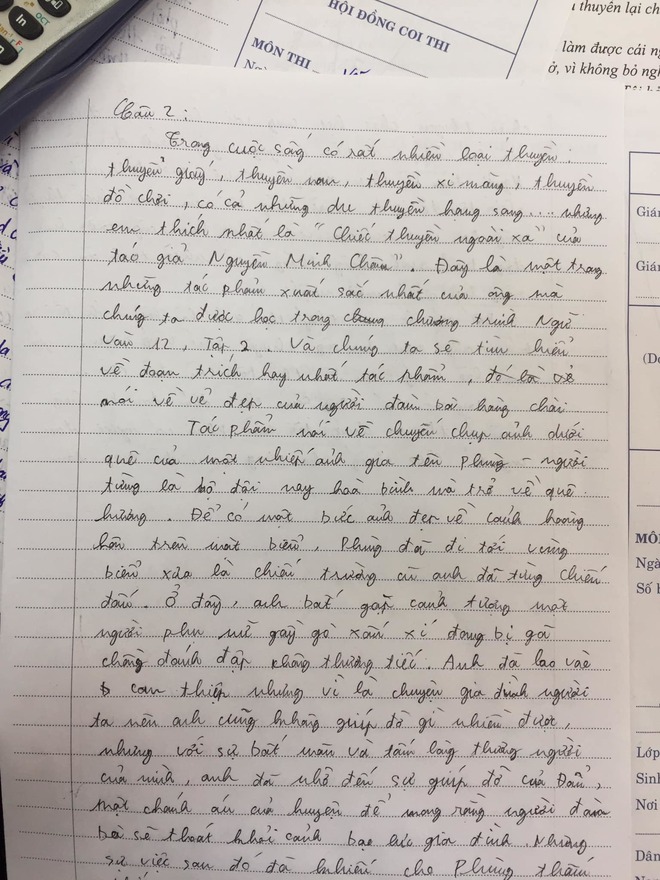 HỘI ĐỒNG COI THI
MÔN THI
thuyền lại ch
làm được cái ng
ở, vì không bỏ ngh
Câu 2 :
Trong cuộc sống có rất nhiều loại thuyền :
thuyền giấy, thuyền nan, thuyền xi măng, thuyền
đồ chơi, có cả những du thuyền hạng sang .... nhưng
em thích nhất là "Chiếc thuyền ngoài xa" của
tác giả Nguyễn Minh Châu". Đây là một trong
những tác phẩm xuất sắc nhất của ông mà
chúng ta được học trong chương trình Ngữ
văn 12, Tập 2. Và chúng ta sẽ tìm hiểu
về đoạn trích hay nhất tác phẩm, đó là
nói về vẻ đẹp của người đàn bà hàng chài
Tác phẩm nói về chuyến chụp ảnh dưới
quê của một nhiếp ảnh gia tên Phùng - người
từng là bộ đội nay hoà bình mà trở về quê
hương. Để có một bức ảnh đẹp về cảnh hoàng
hôn trên mặt biển, Phùng đã đi tới vùng
biển xưa là chiến trường cũ anh đã từng chiến
đấu. Ở đây, anh bắt gặp cảnh tượng một
người phụ nữ gầy gò xấu xí đang bị gã
chồng đánh đập không thương tiếc. Anh đã lao vào
can thiệp nhưng vì là chuyện gia đình người
ta nên anh cũng không giúp đỡ gì nhiều được,
nhưng với sự bất mãn và tấm lòng thương người
của mình, anh đã nhờ đến sự giúp đỡ của Đẩu,
một chánh án của huyện để mong rằng người đàn
bà sẽ thoát khỏi cảnh bạo lực gia đình. Nhưng
sự việc sau đó đã khiến cho Phùng thấm
Giá
Giá
(Do
MÔN
Ngà
Số b
Lớp
Sinh
Nơi
Dân